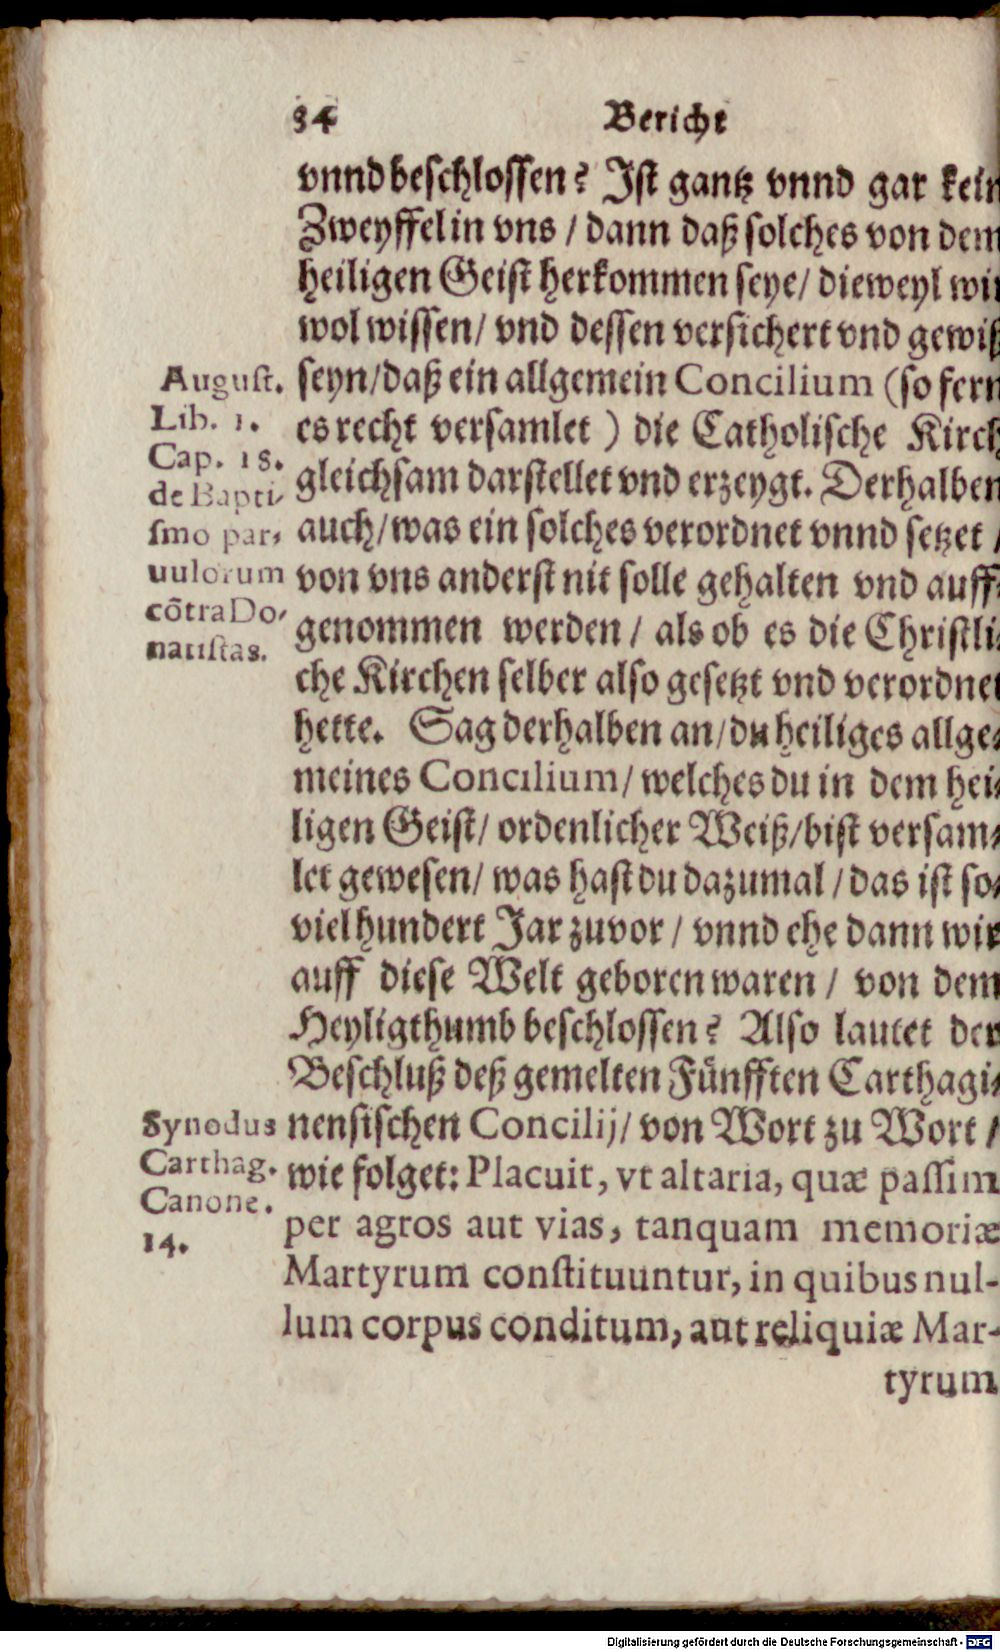 34 Bericht
vnnd beschlossen? Ist gantz vnnd gar kein
Zweyffel in vns / dann daß solches von dem
heiligen Geist herkommen seye / dieweyl wir
wol wissen / vnd dessen versichert vnd gewiß
seyn / daß ein allgemein Concilium (so fern
es recht versamlet ) die Catholische Kirch
gleichsam darstellet vnd erzeygt. Derhalben
auch / was ein solches verordnet vnnd setzet /
von vns anderst nit solle gehalten vnd auff-
genommen werden / als ob es die Christli-
che Kirchen selber also gesetzt vnd verordnet
hette. Sag derhalben an / du heiliges allge-
meines Concilium / welches du in dem hei-
ligen Geist / ordenlicher Weiß / bist versam-
let gewesen / was hast du dazumal / das ist so-
viel hundert Jar zuvor / vnnd ehe dann wir
auff diese Welt geboren waren / von dem
Heyligthumb beschlossen? Also lautet der
Beschluß deß gemelten Fünfften Carthagi-
nensischen Concilij / von Wort zu Wort /
wie folget: Placuit, vt altaria, quæ passim
per agros aut vias, tanquam memoriæ
Martyrum constituuntur, in quibus nul-
lum corpus conditum, aut reliquiæ Mar-
tyrum
August.
Lib. 1.
Cap. 18.
de Bapti-
smo par-
uulorum
cõtra Do-
natistas.
Synodus
Carthag.
Canone.
14.
Digitalisierung gefördert durch die Deutsche Forschungsgemeinschaft - DFG